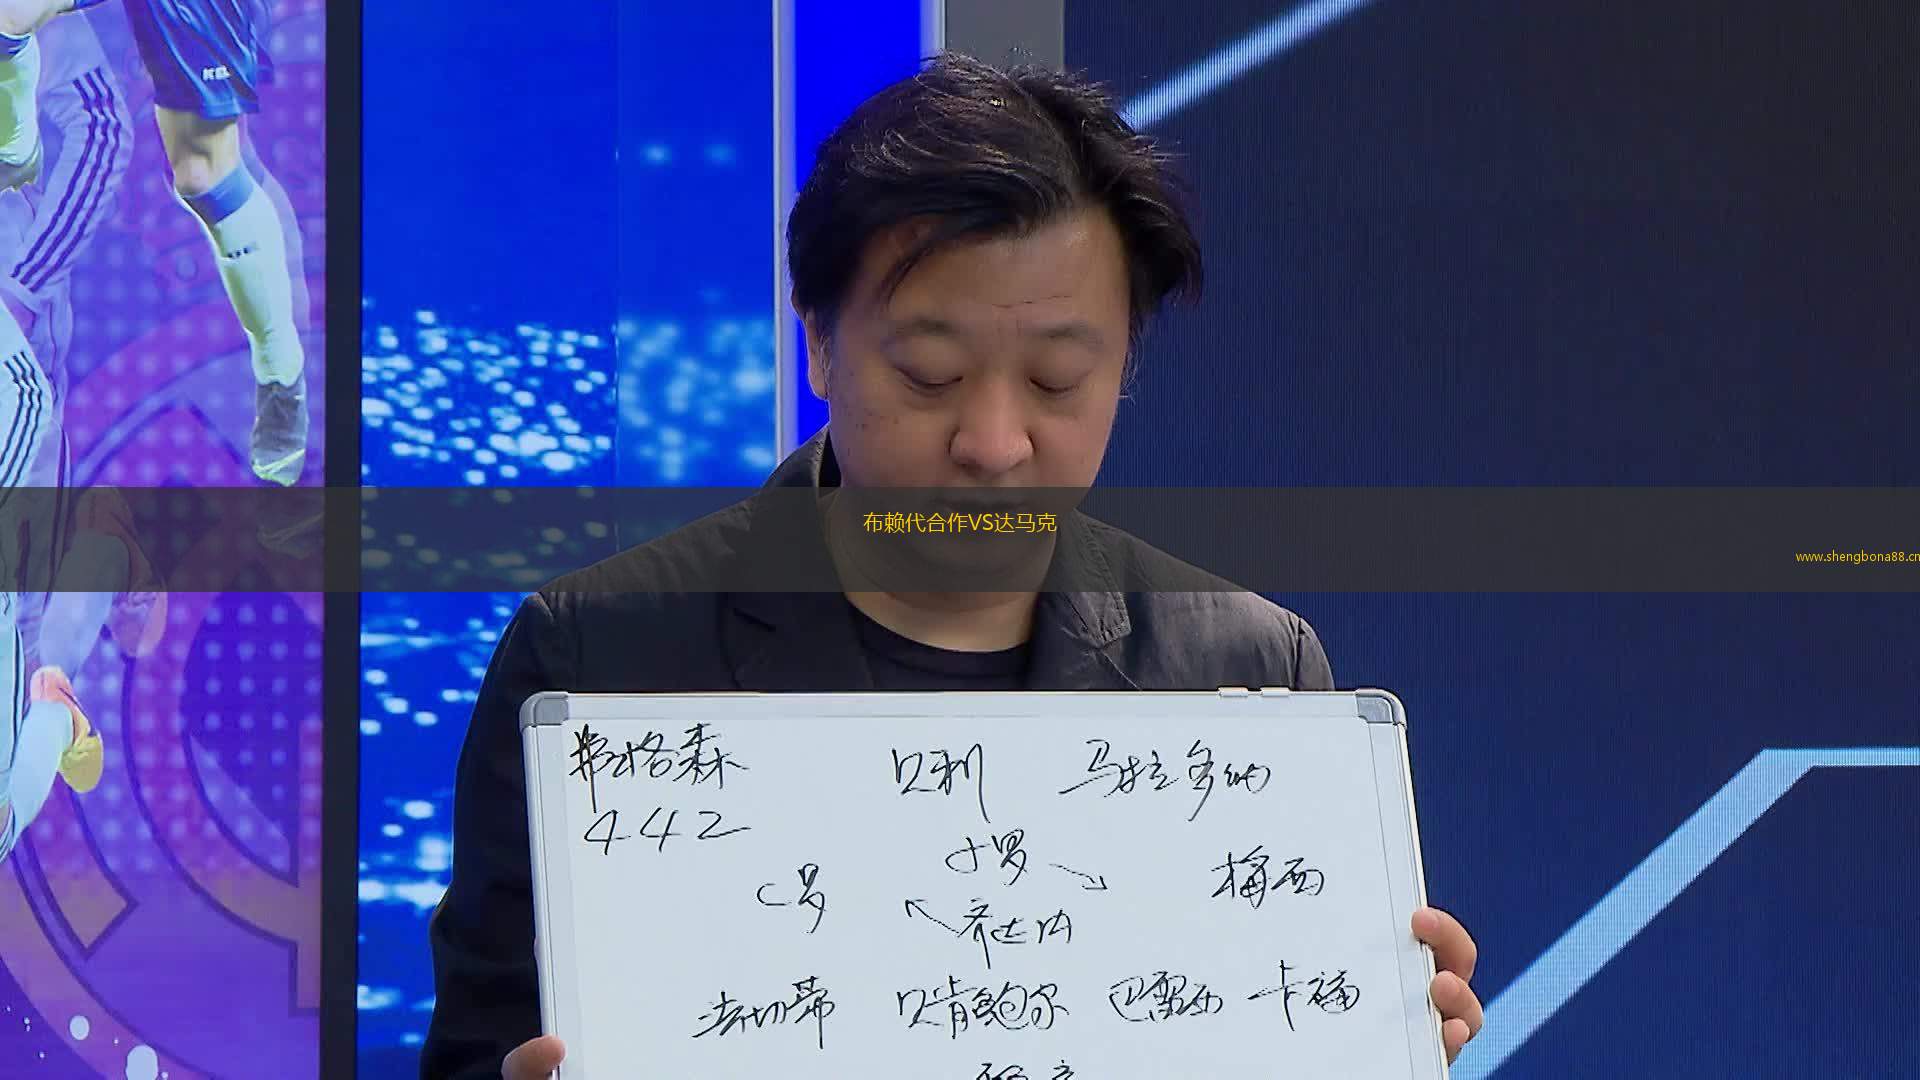 布赖代合作VS达马克
www.shengbona88.cn
弗格森 贝利 马拉多纳
442
小罗
C罗 梅西
齐达内
法切蒂 贝肯鲍尔 巴雷西 卡福